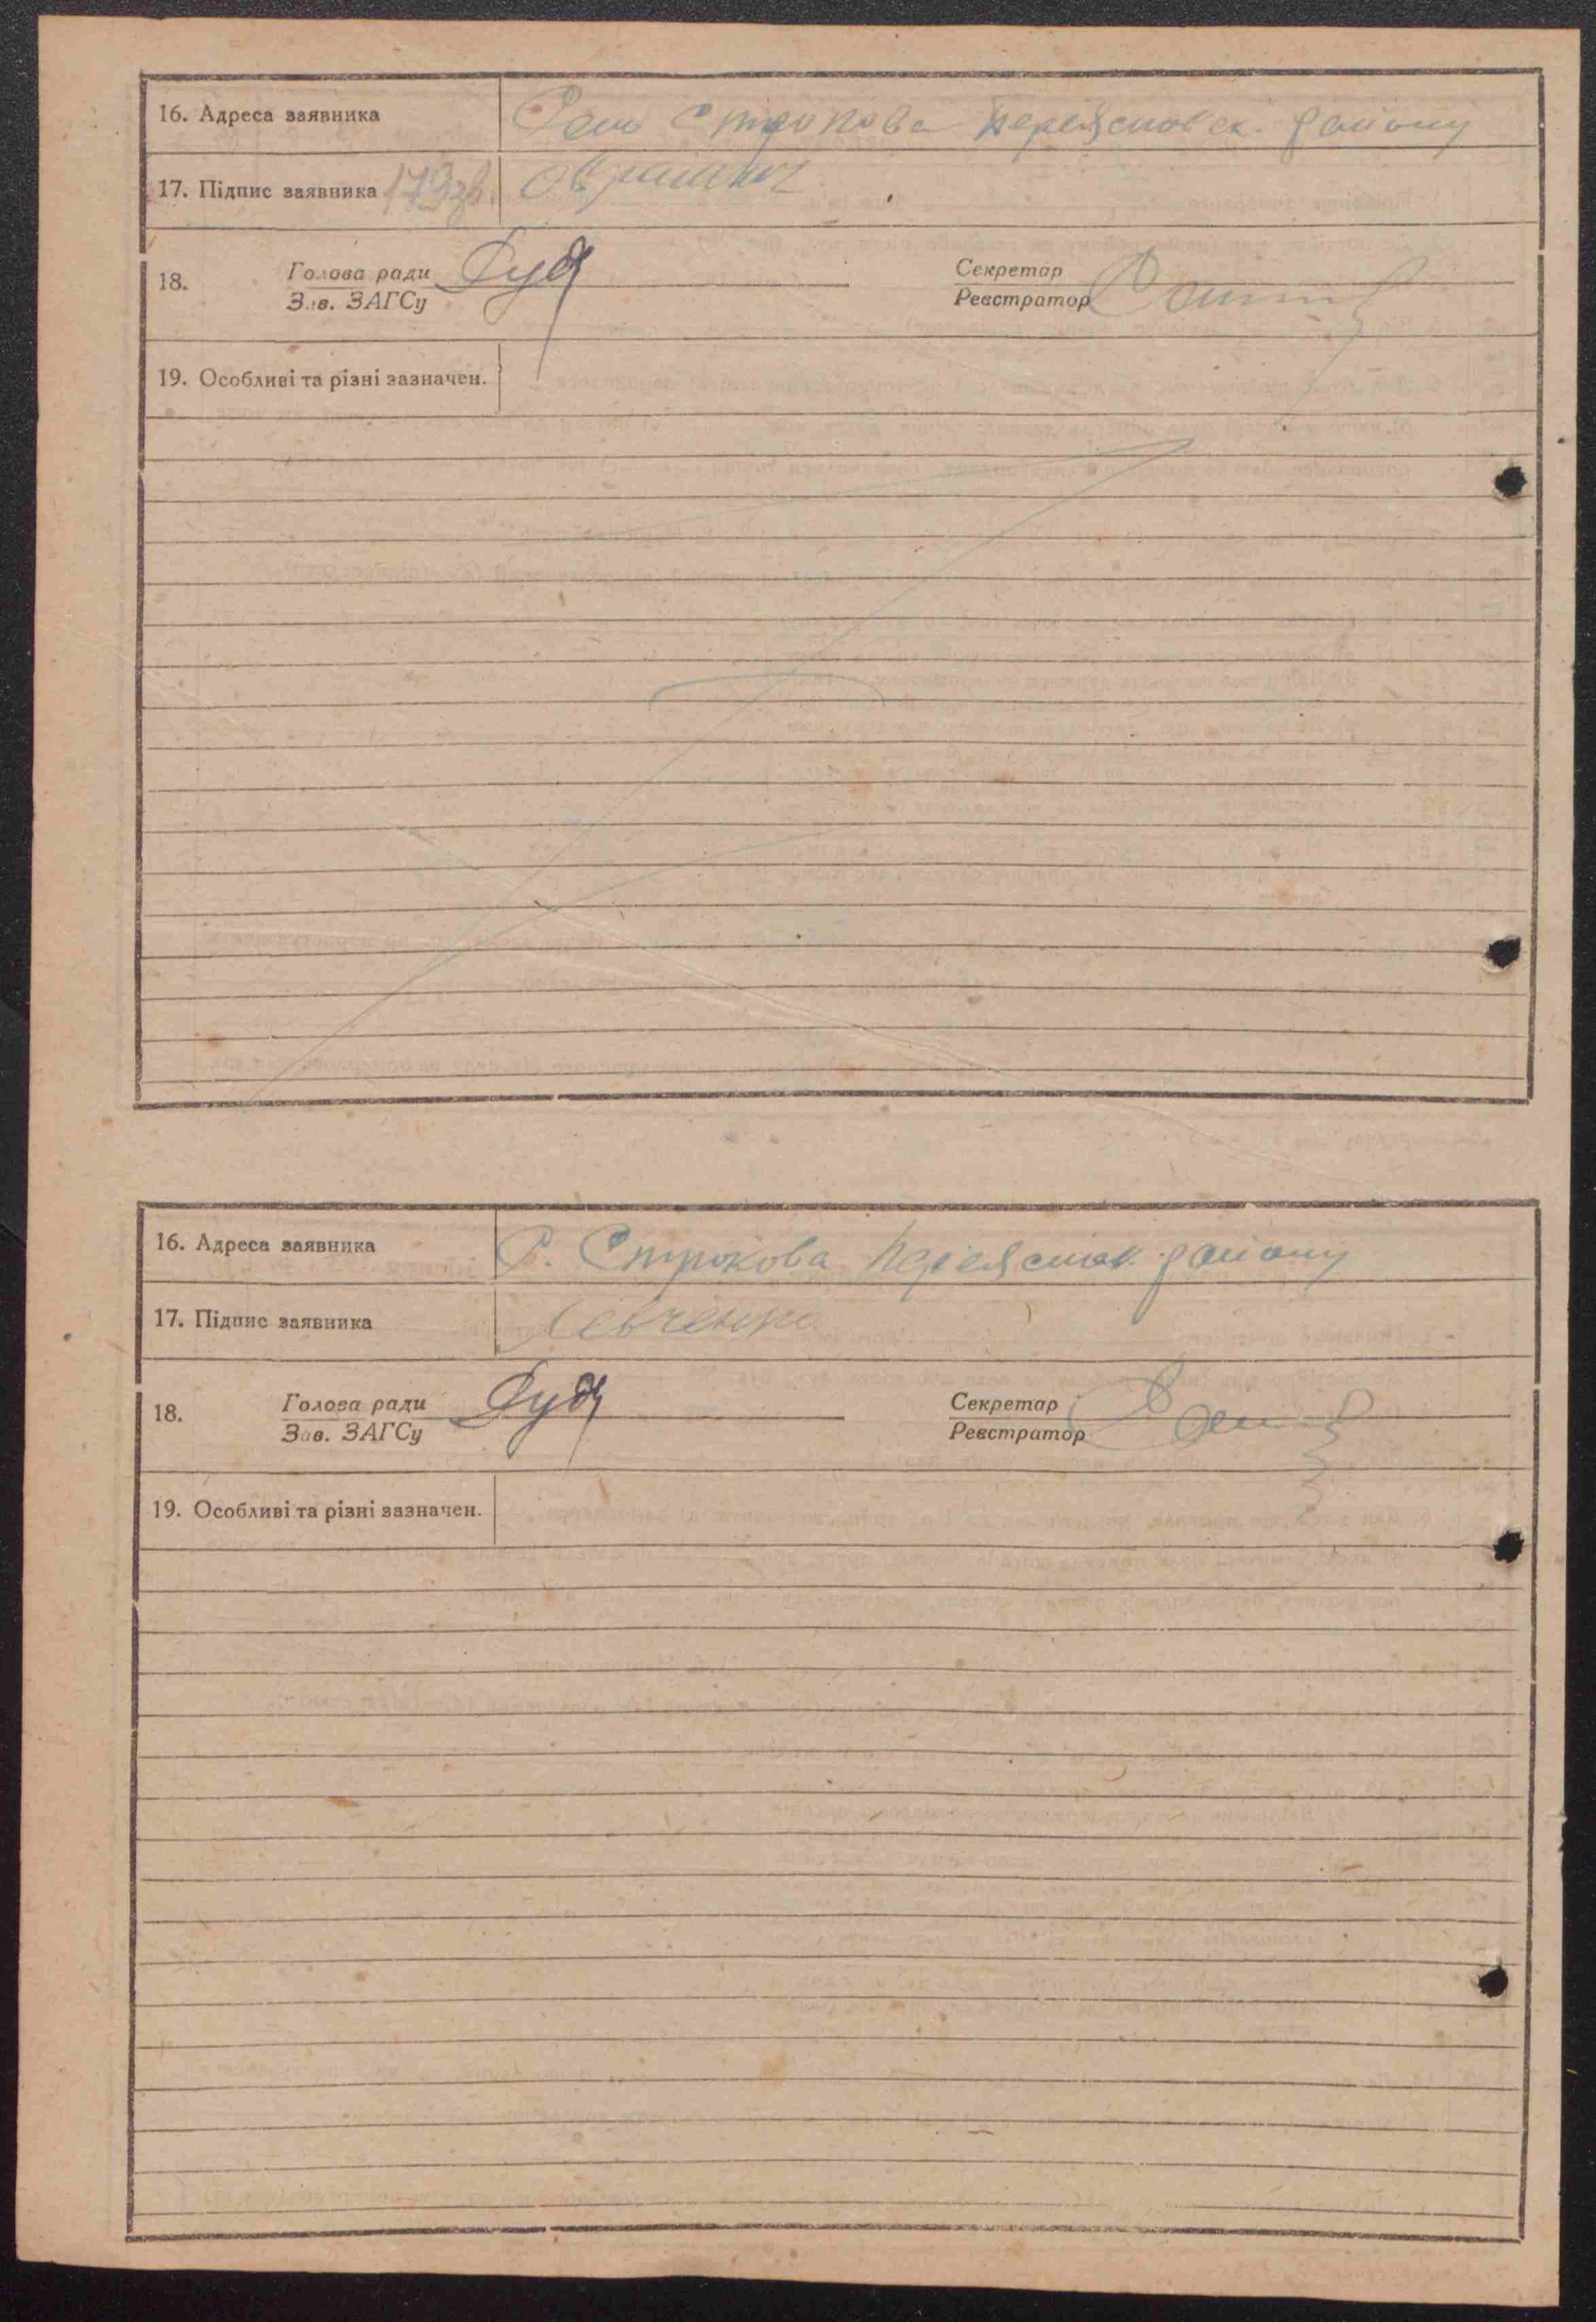 16. Адреса заявника Село Строкова Переясловск. району
17. Підпис заявника 179зв.
18. Голова ради Дуд Секретар
Зав. ЗАГСу Реєстратор
19. Особливі та різні зазначен.
16. Адреса заявника С. Строкова Переяслав. району
17. Підпис заявника Левченко
18. Голова ради Дуд Секретар
Зав. ЗАГСу Реєстратор
19. Особливі та різні зазначен.